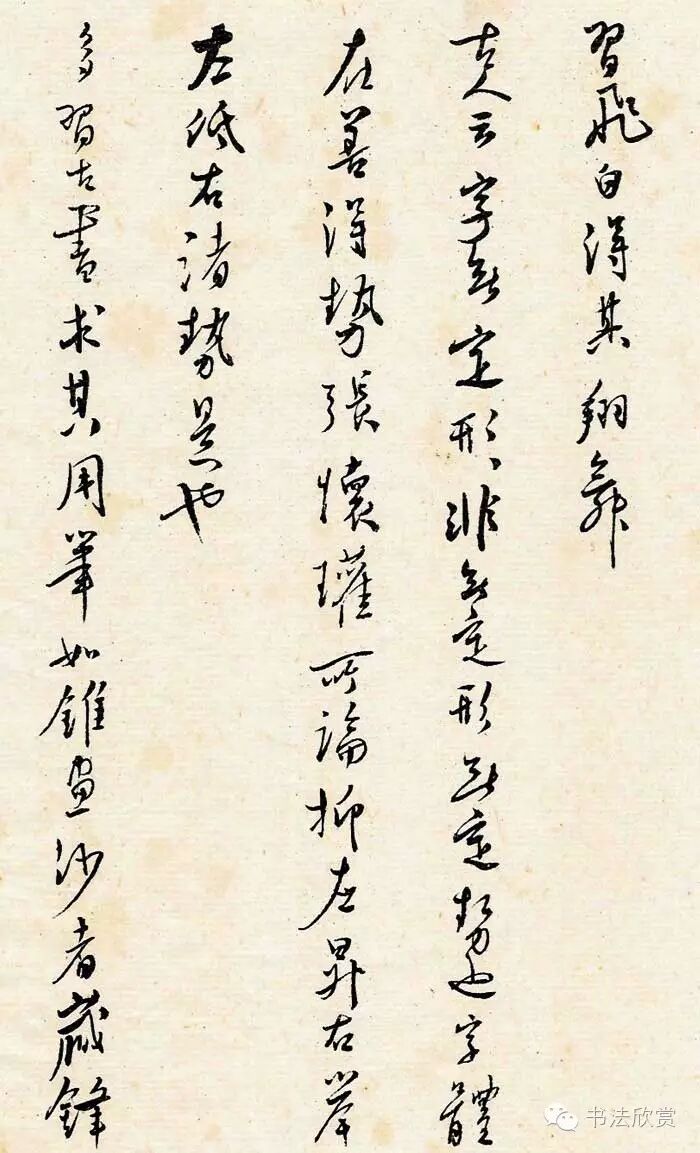 習飛白得其翔舞
古人云字無定形非無定形無定勢也字體
在善得勢張懷瓘所論抑左昇右举
左低右諸勢是也
多習古書求其用筆如錐畫沙者藏鋒
书法欣赏